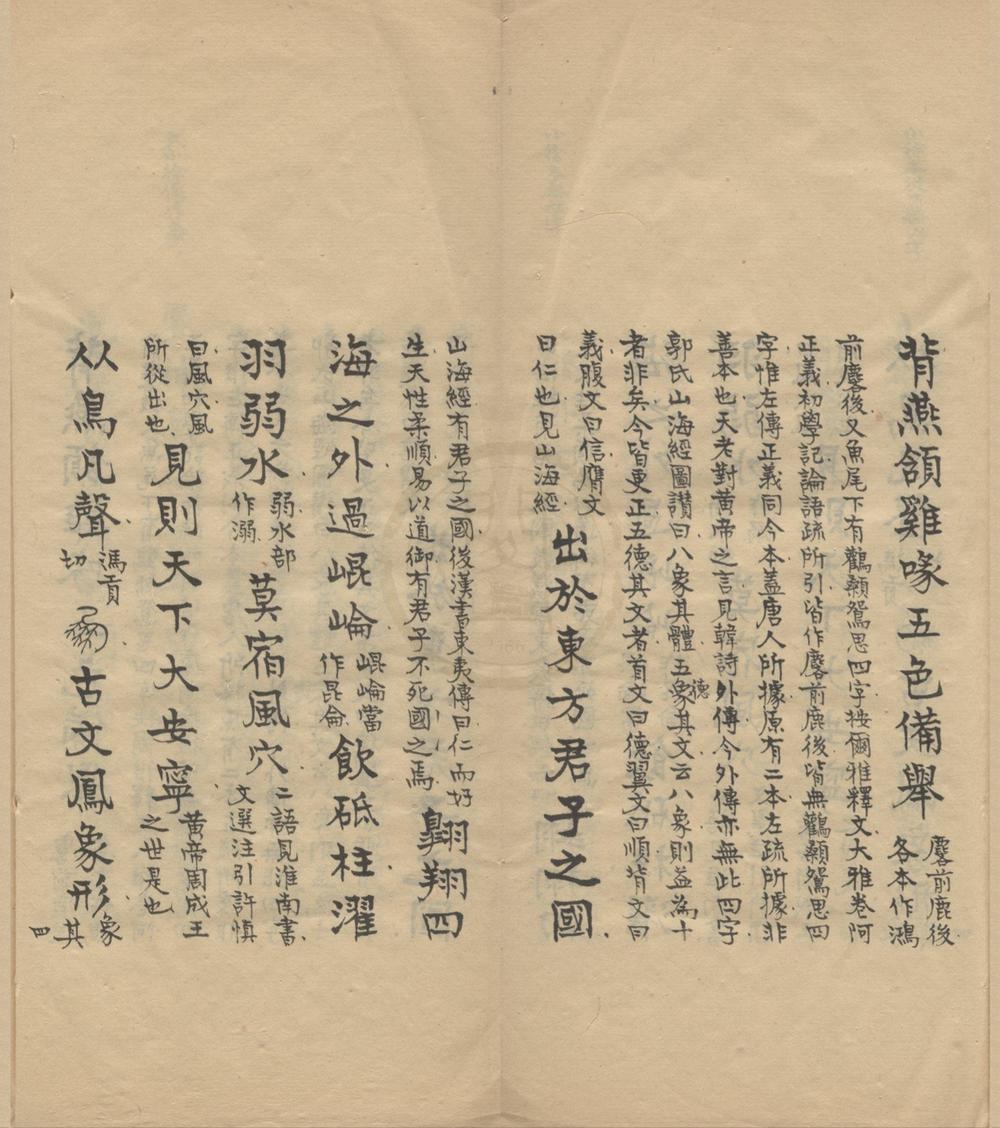 背燕頷雞喙五色備舉
麐前鹿後
各本作鴻
前麐後又魚尾下有鸛顙鴛思四字按爾雅釋文大雅卷阿
正義初學記論語疏所引皆作麐前鹿後皆無鸛顙鴛思四
字惟左傳正義同今本蓋唐人所據原有二本左疏所據非
善本也天老對黃帝之言見韓詩外傳今外傳亦無此四字
郭氏山海經圖讚曰八象其體五象其文云八象則益為十
德
者非矣今皆更正五德其文者首文曰德翼文曰順背文曰
義腹文曰信膺文
曰仁也見山海經
出於東方君子之國
山海經有君子之國後漢書東夷傳曰仁而好
生天性柔順易以道御有君子不死國之焉
翺翔四
海之外過崐崘
崐崘當
作昆侖
飲砥柱濯
羽弱水
弱水部
作溺
莫宿風穴
二語見淮南書
文選注引許慎
曰風穴風
所從出也
見則天下大安寧
黃帝周成王
之世是也
从鳥凡聲
馮貢
切
古文鳳象形
象
其
四